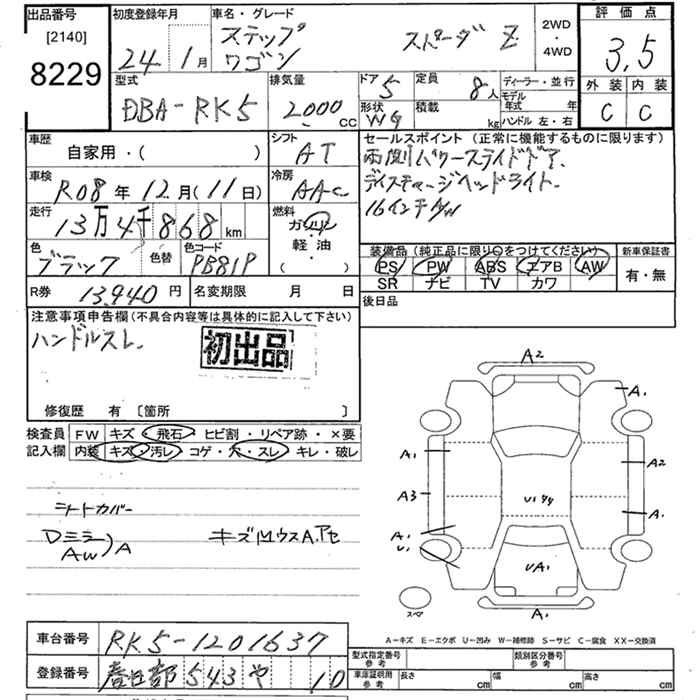 出品番号
[2140]
8229
初度登録年月
24年 1月
車名・グレード
ステップ
ワゴン
スパーダ Z
2WD
・
4WD
評価点
3,5
外装 内装
C C
型式
DBA-RK5
排気量
2000 CC
ドア 5
形状 WG
定員 8人
積載 kg
ディーラー・並行
モデル年式 年
ハンドル 左・右
車歴
自家用・( )
シフト
AT
車検
R08年 12月(11日)
冷房
AAC
走行
13万4千868km
燃料
ガソリン
軽油
( )
色
ブラック
色替
色コード
PB81P
R券 13,940円
名変期限 月 日
セールスポイント(正常に機能するものに限ります)
両側パワースライドドア.
ディスチャージヘッドライト.
16インチAW
装備品(純正品に限り○をつけてください)
PS PW ABS エアB AW
SR ナビ TV カワ
新車保証書
有・無
後日品
注意事項申告欄(不具合内容等は具体的に記入して下さい)
ハンドルスレ.
初出品
修復歴 有 [箇所 ]
検査員
記入欄
FW キズ・飛石・ヒビ割・リペア跡・×要
内装 キズ・汚レ・コゲ・穴・スレ・キレ・破レ
シートカバー
Dミラー
AW)A
A2
A1
A1
A2
A3
A1
A1
U1
UA1
A1
スペア
A-キズ E-エクボ U-凹み W-補修跡 S-サビ C-腐食 XX-交換済
車台番号 RK5-1201637
登録番号 春日部 543 や 10
型式指定番号
参考
類別区分番号
参考
車庫証明用
参考
長さ cm 幅 cm 高さ cm